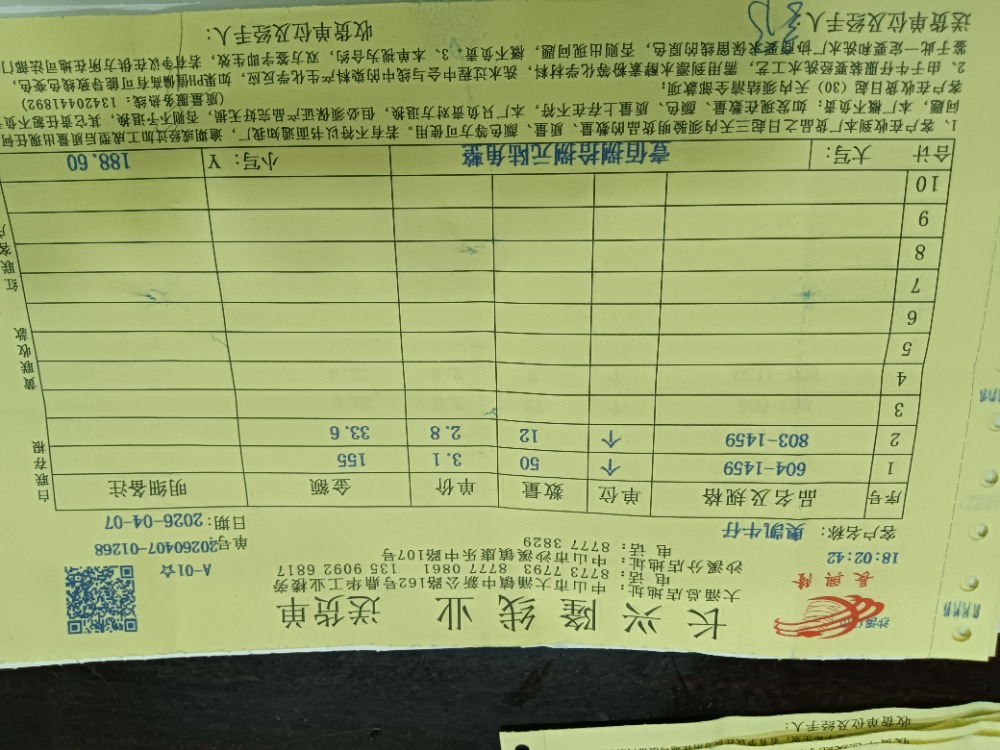 长兴隆线业 送货单
長興隆
大涌总店地址：中山市大涌镇中新公路162号鼎华工业楼旁
电话：8773 7793 8777 0861 135 9092 6817
沙溪分店地址：中山市沙溪镇康乐中路107号
电话：8777 3829
A-01☆
18:02:42
单号：20260407-01268
客户名称：奥凯牛仔
日期：2026-04-07
序号 品名及规格 单位 数量 单价 金额 明细备注
1 604-1459 个 50 3.1 155
2 803-1459 个 12 2.8 33.6
3
4
5
6
7
8
9
10
合计 大写：壹佰捌拾捌元陆角整 小写：￥ 188.60
白联存根
黄联收款
红联客户
1、客户在收到本厂货品之日起三天内须验明货品的数量、质量、颜色等方可使用。若有不符以书面通知我厂，逾期或经过加工成型后质量出现任何
问题，本厂概不负责：如发现在数量、颜色、质量上存在不符，本厂只负责对方退换，但必须保证产品完好无损，否则不予退换，其它责任恕不负
客户在收货日起（30）天内须结清全部款项；
（质量服务热线：13420441892）
2、由于牛仔服装要经洗水工艺，需用到漂水酵素粉等化学材料，洗水过程中会与线中的染料产生化学反应，如果PH值偏高有可能导致线色变色，
鉴于此一定要和洗水厂协商要求保留线的原色，否则出现问题，概不负责。3、本单视为合约，双方签字即生效，若有争议在供方所在地司法部门
送货单位及经手人：
收货单位及经手人：
收货单位及经手人：